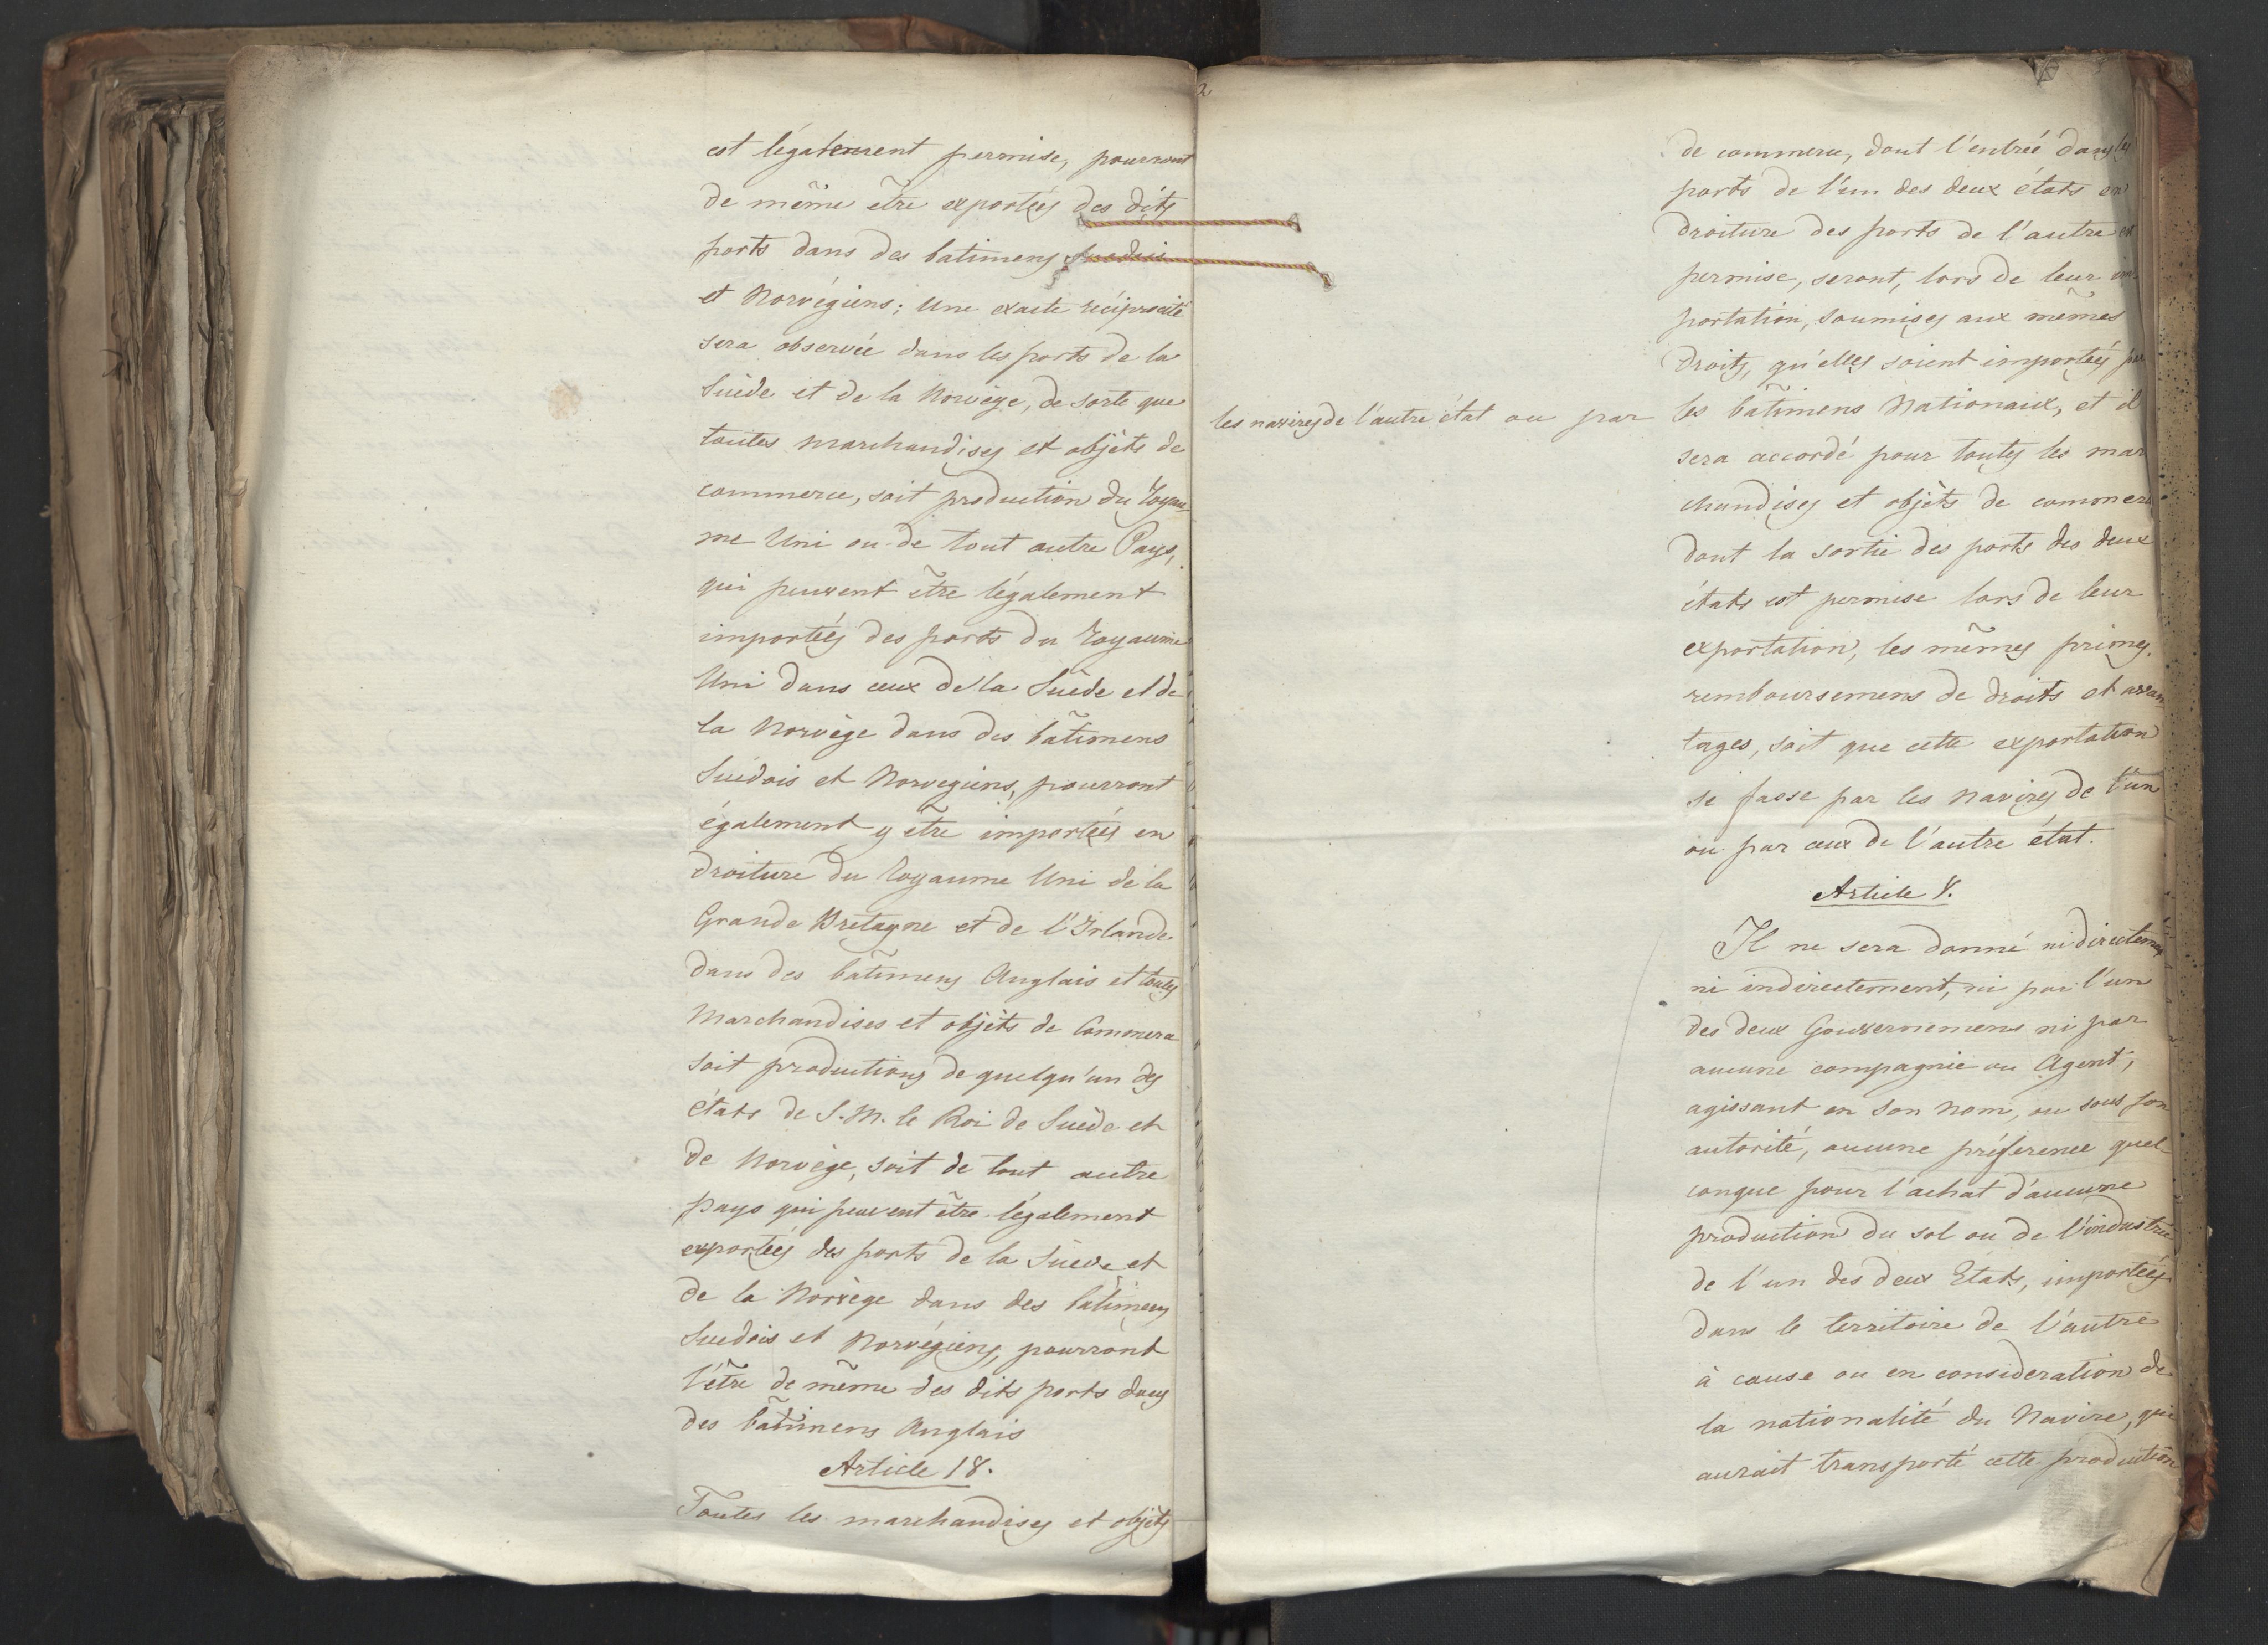 est légalement permise, pourront
de même être exportées des dits
ports dans des batimens Suedois
et Norvégiens; Une exacte réciprocité
sera observée dans les ports de la
Suède et de la Norvège, de sorte que
toutes marchandises et objèts de
commerce, soit production du Royau-
me Uni ou de tout autre Pays,
qui peuvent être légalement
importées des ports du Royaume
Uni dans ceux de la Suède et de
la Norvège dans des bâtimens
Suédois et Norvegiens, pourront
également y être importées en
droiture du Royaume Uni de la
Grande Bretagne et de l'Irlande
dans des bâtimens Anglais et toutes
Marchandises et objèts de Commerce
soit productions de quelqu'un des
états de S. M. le Roi de Suède et
de Norvège, soit de tout autre
pays qui peuvent être légalement
exportées des ports de la Suède et
de la Norvège dans des bâtimens
Suedois et Norvégiens, pourront
l'être de même des dits ports dans
des bâtimens Anglais
Article 18.
Toutes les marchandises et objèts
2
de commerce, dont l'entrée dans les
ports de l'un des deux états en
droiture des ports de l'autre est
permise, seront, lors de leur im-
portation, soumises aux mêmes
droits, qu'elles soient importées par
les navires de l'autre état ou par
les bâtimens Nationaux, et il
sera accordé pour toutes les mar
chandises et objèts de commerce
dont la sortie des ports des deux
états est permise lors de leur
exportation, les mêmes primes.
remboursemens de droits et avan-
tages, soit que cette exportation
se fasse par les Navires de l'un
ou par ceux de l'autre état.
Article 8.
Il ne sera donné ni directement
ni indirectement, ni par l'un
des deux Gouvernemens ni par
aucune compagnie ou Agent,
agissant en son nom, ou sous son
autorité, aucune préference quel-
conque pour l'achat d'aucune
production du sol ou de l'industrie
de l'un des deux Etats, importées
dans le territoire de l'autre
à cause ou en consideration de
la nationalité du Navire, qui
aurait transporté cette production